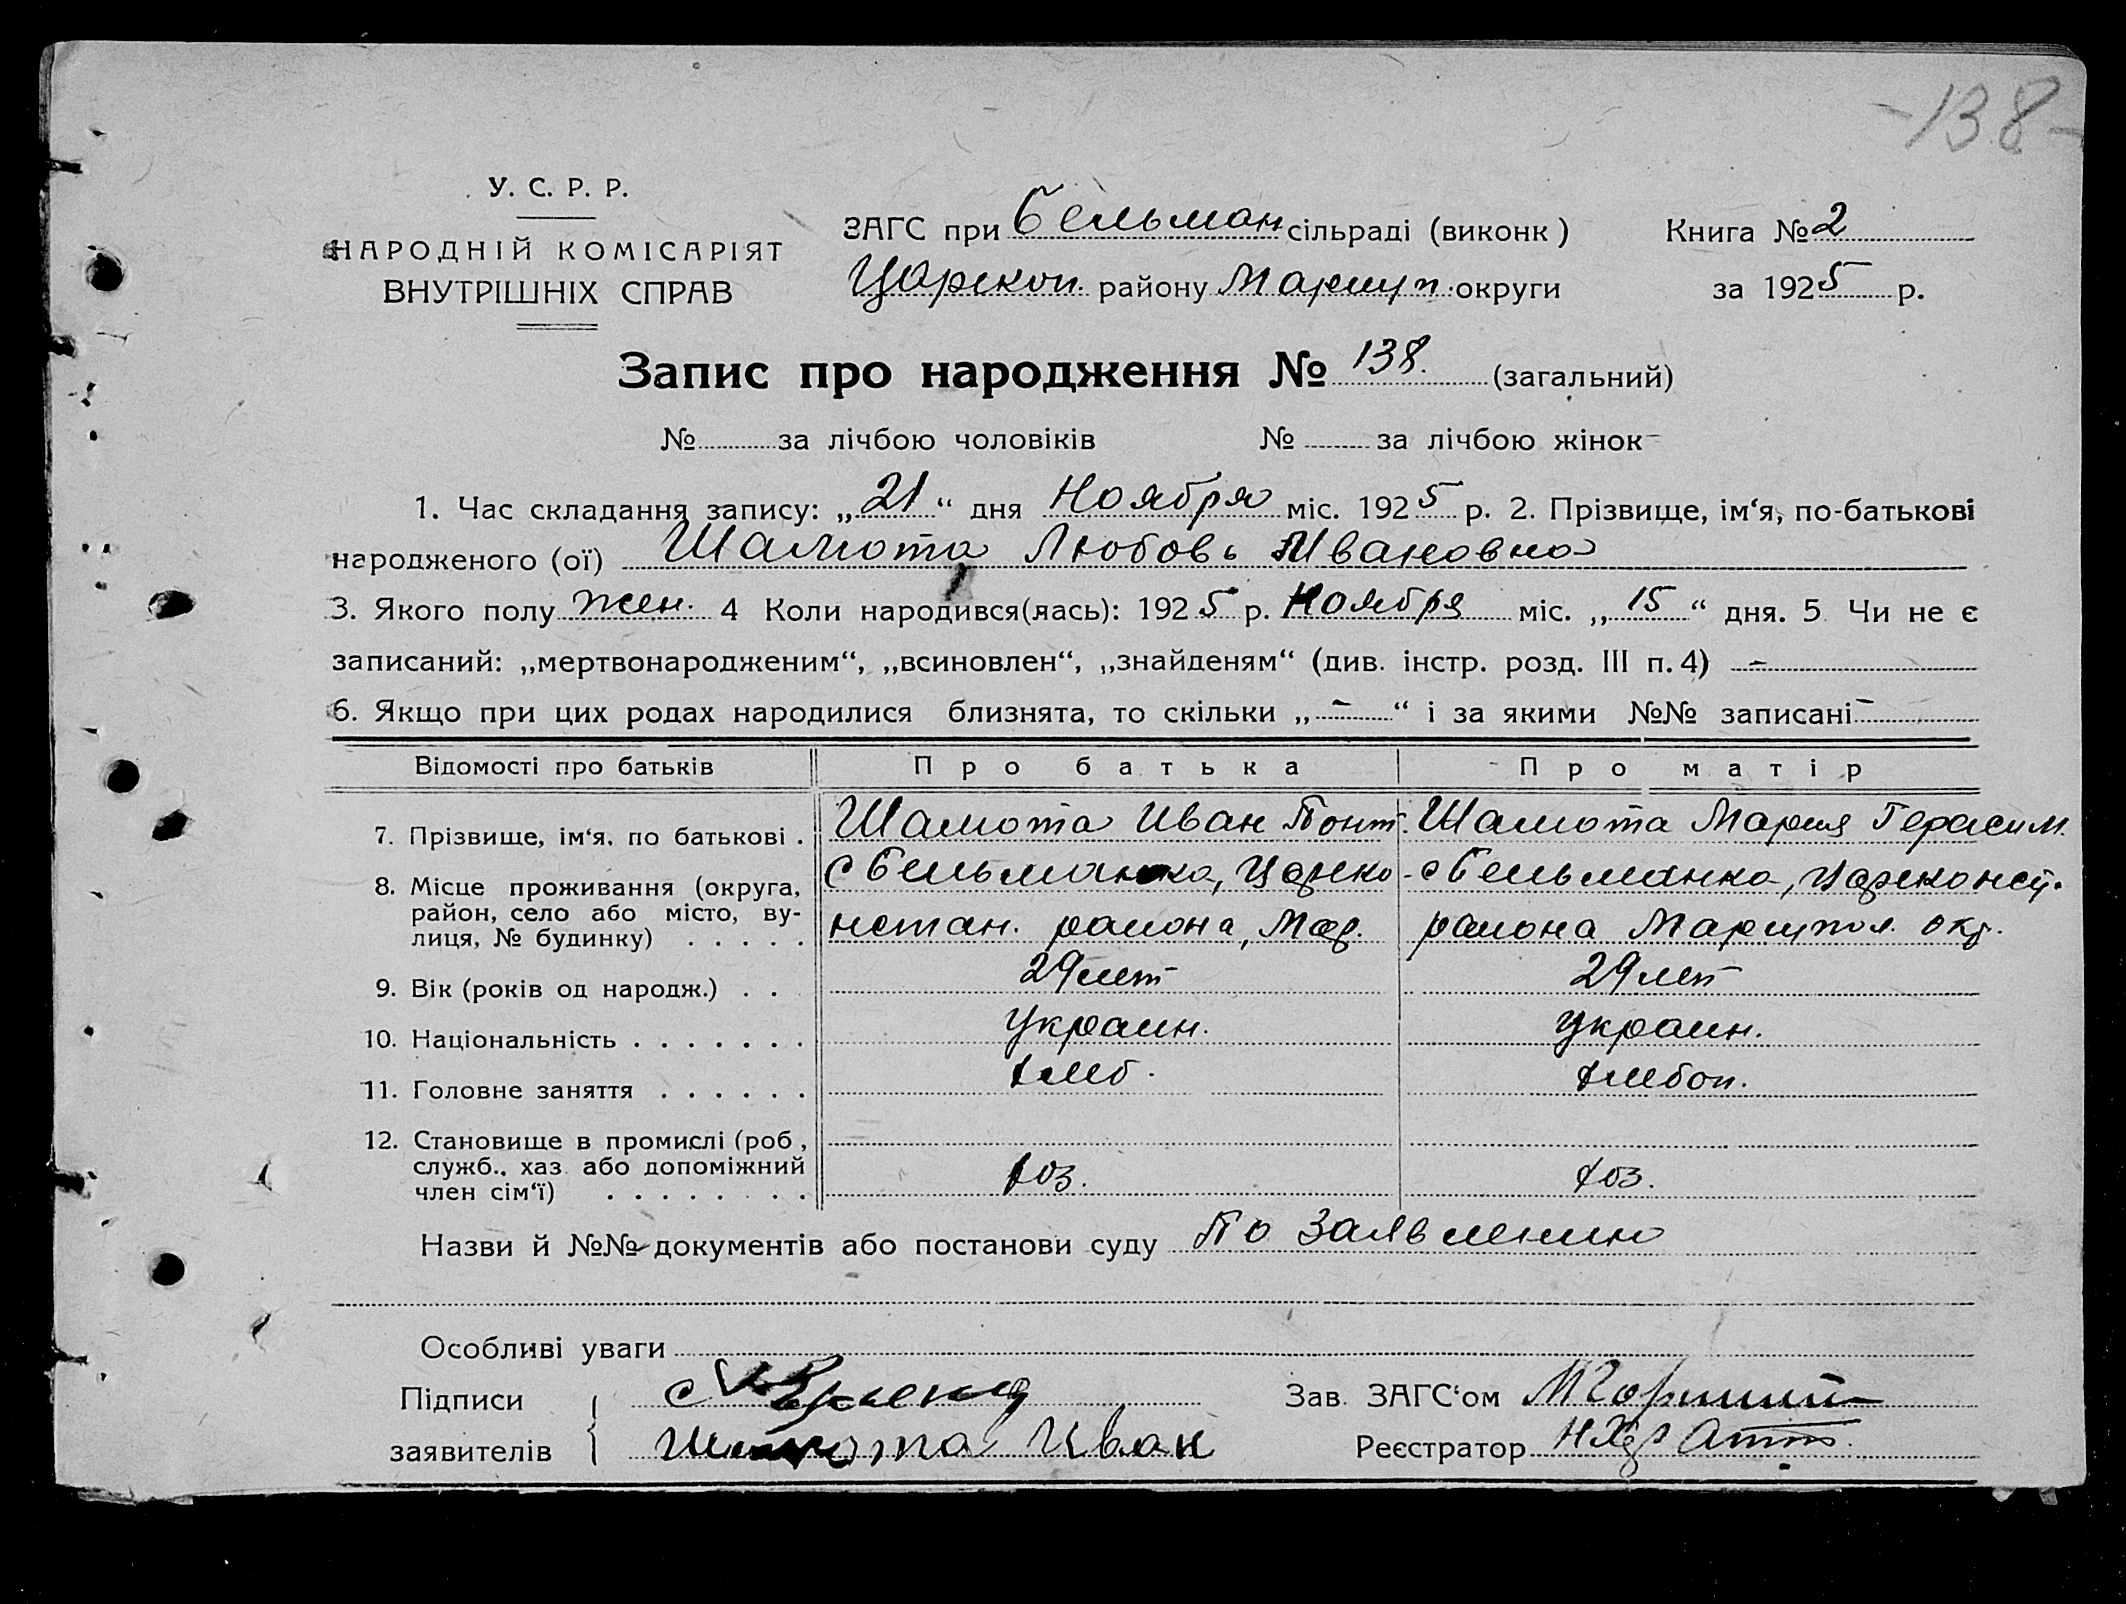 -138-
У. С. Р. Р.
НАРОДНІЙ КОМІСАРІЯТ
ВНУТРІШНІХ СПРАВ
ЗАГС при Бельман сільраді (виконк) Книга № 2
Царекон. району Мариуп. округи за 1925 р.
Запис про народження № 138. (загальний)
№ за лічбою чоловіків № за лічбою жінок
1. Час складання запису: „21“ дня Ноября міс. 1925 р. 2. Прізвище, ім‘я, по-батькові
народженого (ої) Шамота Любовь Ивановна
3. Якого полу жен. 4 Коли народився(лась): 1925 р. Ноября міс. „15“ дня. 5 Чи не є
записаний: „мертвонародженим“, „всиновлен“, „знайденям“ (див. інстр. розд. III п. 4) -
6. Якщо при цих родах народилися близнята, то скільки „-“ і за якими №№ записані -
Відомості про батьків Про батька Про матір
7. Прізвище, ім‘я, по батькові . Шамота Иван Понт. Шамота Мария Герасим.
8. Місце проживання (округа, с Бельманка, Цареко- с Бельманка, Цареконст.
район, село або місто, ву-
лиця, № будинку) . . . . . нстан. района, Мар. района Мариупол. окр.
9. Вік (років од народж.) . . 29 лет 29 лет
10. Національність . . . . . . . Украин. Украин.
11. Головне заняття . . . . . . хлеб. хлебоп.
12. Становище в промислі (роб,
служб., хаз або допоміжний
член сім‘ї) . . . . . . . хоз. хоз.
Назви й №№ документів або постанови суду По заявлению
Особливі уваги
Підписи Зав. ЗАГС‘ом
заявителів Шамота Иван Реєстратор